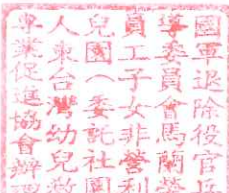 國軍退除役官兵
導委員會馬蘭榮
員工子女非營利
兒園（委託社團
人東台灣幼兒教
專業促進協會辦理